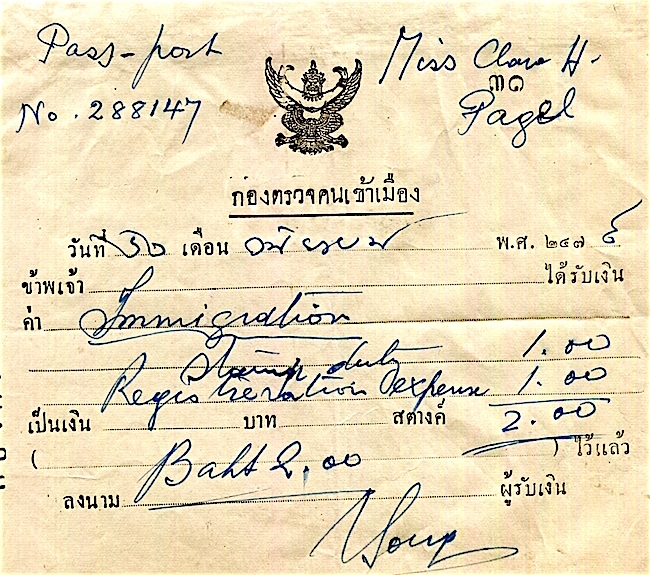 Pass-port Miss Clara H.
๓๑
No. 288147 Pagel
กองตรวจคนเข้าเมือง
วันที่ เดือน พ.ศ. ๒๔๗
ข้าพเจ้า ได้รับเงิน
ค่า Immigration
Stamp duty 1.00
Registeration expense 1.00
เป็นเงิน บาท สตางค์ 2.00
( ) ไว้แล้ว
Baht 2.00
ลงนาม ผู้รับเงิน